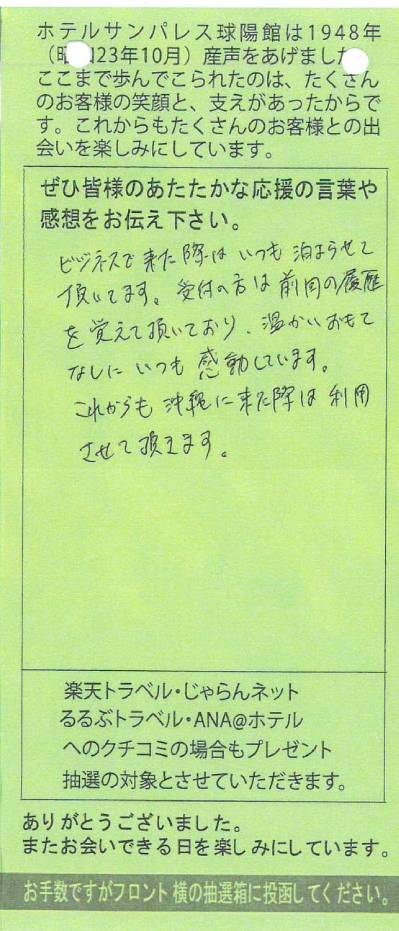 ホテルサンパレス球陽館は1948年
（昭和23年10月）産声をあげました
ここまで歩んでこられたのは、たくさん
のお客様の笑顔と、支えがあったからで
す。これからもたくさんのお客様との出
会いを楽しみにしています。
ぜひ皆様のあたたかな応援の言葉や
感想をお伝え下さい。
ビジネスで来た際は いつも 泊まらせて
頂いてます。受付の方は前回の履歴
を覚えて頂いており、温かいおもて
なしに いつも 感動しています。
これからも 沖縄に来た際は 利用
させて頂きます。
楽天トラベル・じゃらんネット
るるぶトラベル・ANA@ホテル
へのクチコミの場合もプレゼント
抽選の対象とさせていただきます。
ありがとうございました。
またお会いできる日を楽しみにしています。
お手数ですがフロント横の抽選箱に投函してください。